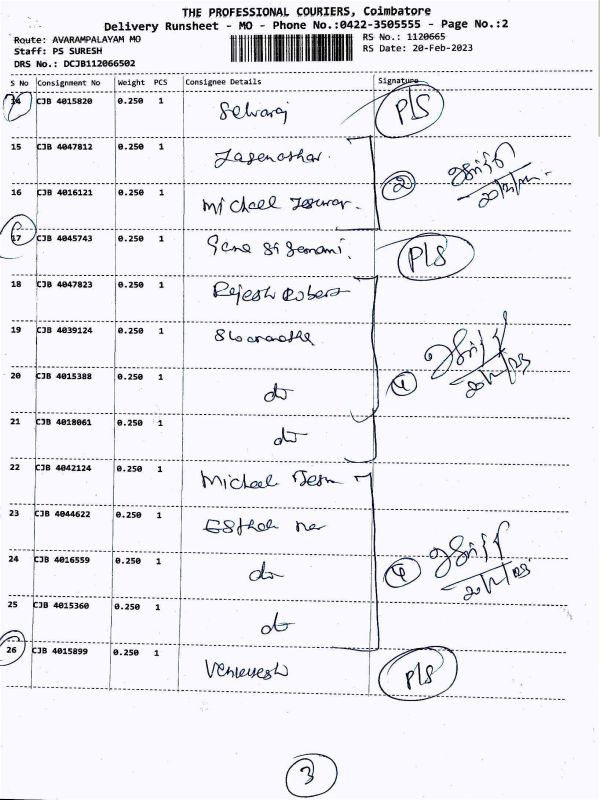 THE PROFESSIONAL COURIERS, Coimbatore
Delivery Runsheet - MO - Phone No.:0422-3505555 - Page No.:2
Route: AVARAMPALAYAM MO
RS No.: 1120665
Staff: PS SURESH
RS Date: 20-Feb-2023
DRS No.: DCJB112066502
S No Consignment No Weight PCS Consignee Details Signature
14 CJB 4015820 0.250 1 Selvaraj P/S
15 CJB 4047812 0.250 1
16 CJB 4016121 0.250 1 Michael 2
17 CJB 4045743 0.250 1 P/S
18 CJB 4047823 0.250 1 Rajesh Robert
19 CJB 4039124 0.250 1
20 CJB 4015388 0.250 1 do 4
21 CJB 4018061 0.250 1 do
22 CJB 4042124 0.250 1 Michael
23 CJB 4044622 0.250 1
24 CJB 4016559 0.250 1 do 4
25 CJB 4015360 0.250 1 do
26 CJB 4015899 0.250 1 P/S
3